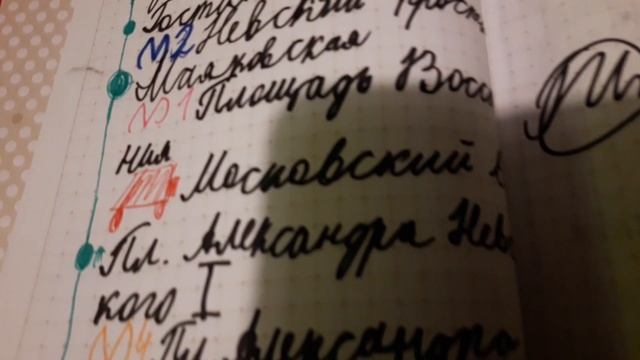 М2 Невский
Маяковская
М1 Площадь
НИЛ
Московский
Пл. Александра Нев
кого I
М4 Пл. Александра